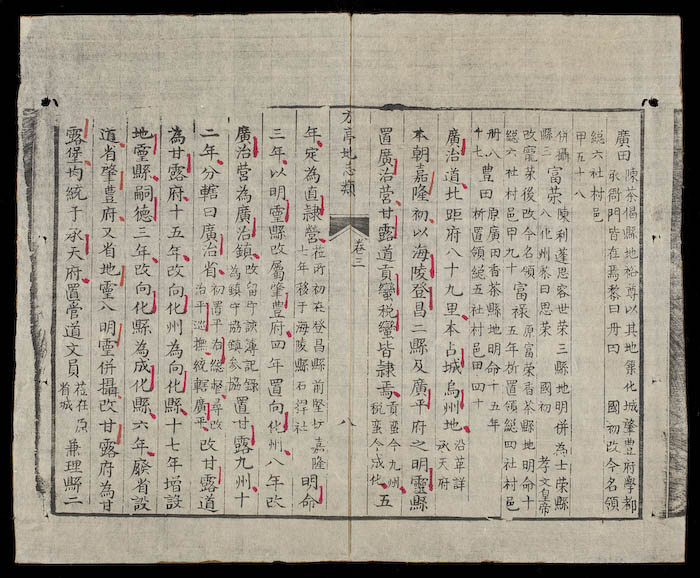 廣田 陳茶偈縣地裕尊以其地築化城肇豐府學都
承衙門皆在焉黎曰丹田 國初改今名領
總六社村邑
甲五十八
併攝
縣三
富荣 陳利蓬思容世荣三縣地明併為士荣縣
八化州黎曰思荣 國初 孝文皇帝
改寵荣後改今名領
總六社村邑甲九十
富禄 原富荣香茶縣地明命十
五年析置領總四社村邑
册八
十七
豊田 原廣田香茶縣地明命十五年
析置領總五社村邑田四十
廣治道北距府八十九里本占城烏州地 沿革詳
承天府
本朝嘉隆初以海陵登昌二縣及廣平府之明靈縣
置廣治营甘露道貢蠻税蠻皆隷焉 貢蠻今九州
税蠻今成化 五
方亭地志類 卷三 八
年定為直隷营 莅所初在登昌縣前堅坊嘉隆
七年移于海陵縣石捍社 明命
三年以明靈縣改屬肇豐府四年置向化州八年改
廣治营為廣治鎮 改留守該簿記録
為鎮守協鎮參協 置甘露九州十
二年分轄曰廣治省 初置平治總督尋改
治平巡撫統轄廣平 改甘露道
為甘露府十五年改向化州為向化縣十七年增設
地靈縣嗣德三年改向化縣為成化縣六年廢省設
道省肇豐府又省地靈八明靈併攝改甘露府為甘
露堡均統于承天府置管道文員 莅在原
省城 兼理縣二